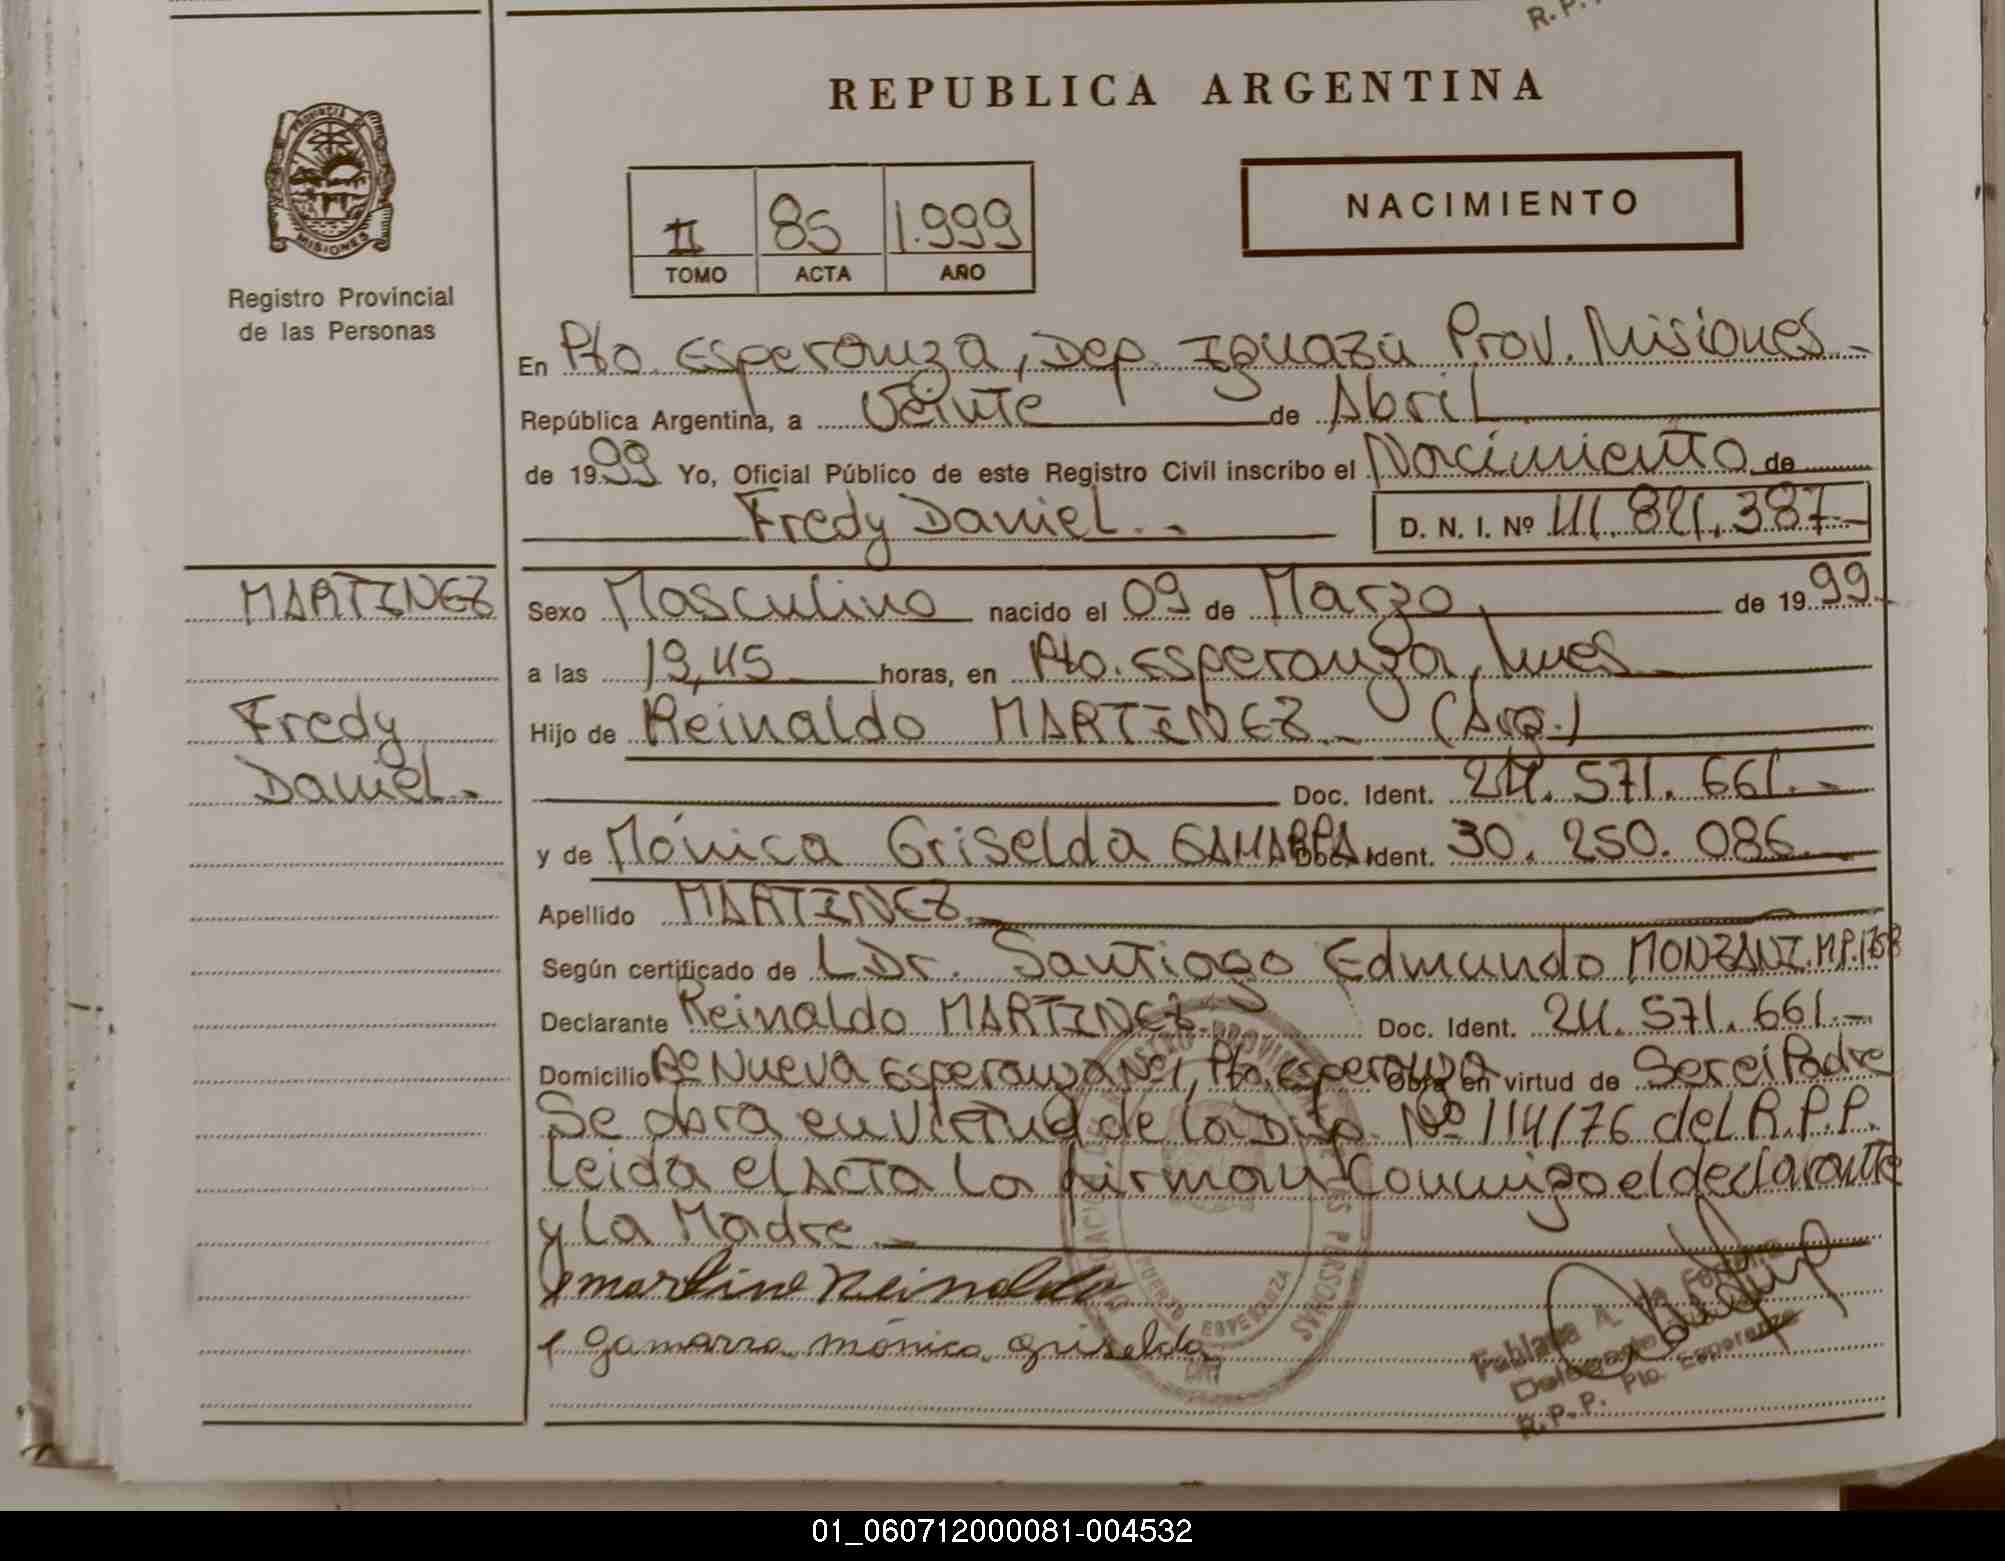 R.P.
REPUBLICA ARGENTINA
PROVINCIA
MISIONES
Registro Provincial
de las Personas
II 85 1.999
TOMO ACTA AÑO
NACIMIENTO
En Pto. Esperanza, Dep. Iguazú Prov. Misiones.-
República Argentina, a Veinte de Abril
de 1999 Yo, Oficial Público de este Registro Civil inscribo el Nacimiento de
Fredy Daniel.- D. N. I. Nº 41.821.387-
MARTINEZ
Fredy
Daniel.-
Sexo Masculino nacido el 09 de Marzo de 1999.-
a las 19,45 horas, en Pto. Esperanza,
Hijo de Reinaldo MARTINEZ.- (Arg.)
Doc. Ident. 24.571.661.-
y de Mónica Griselda GAMARRA Doc. Ident. 30.250.086.-
Apellido MARTINEZ.-
Según certificado de LDr. Santiago Edmundo MONZANI.M.P.
Declarante Reinaldo MARTINEZ. Doc. Ident. 24.571.661.-
Domicilio Bº Nueva Esperanza Nº1, Pto. Esperanza Obra en virtud de Ser el Padre
Se obra en virtud de la Disp. Nº 114/76 del R.P.P.
Leida el Acta la firman Conmigo el declarante
y La Madre.-
Martine Reinaldo
Gamarra mónica griselda
PUERTO ESPERANZA
Fabiana A.
Delegado
R.P.P. Pto. Esperanza
01_060712000081-004532